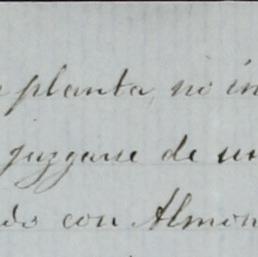 planta, no in
juzgarse de un
do con Almon